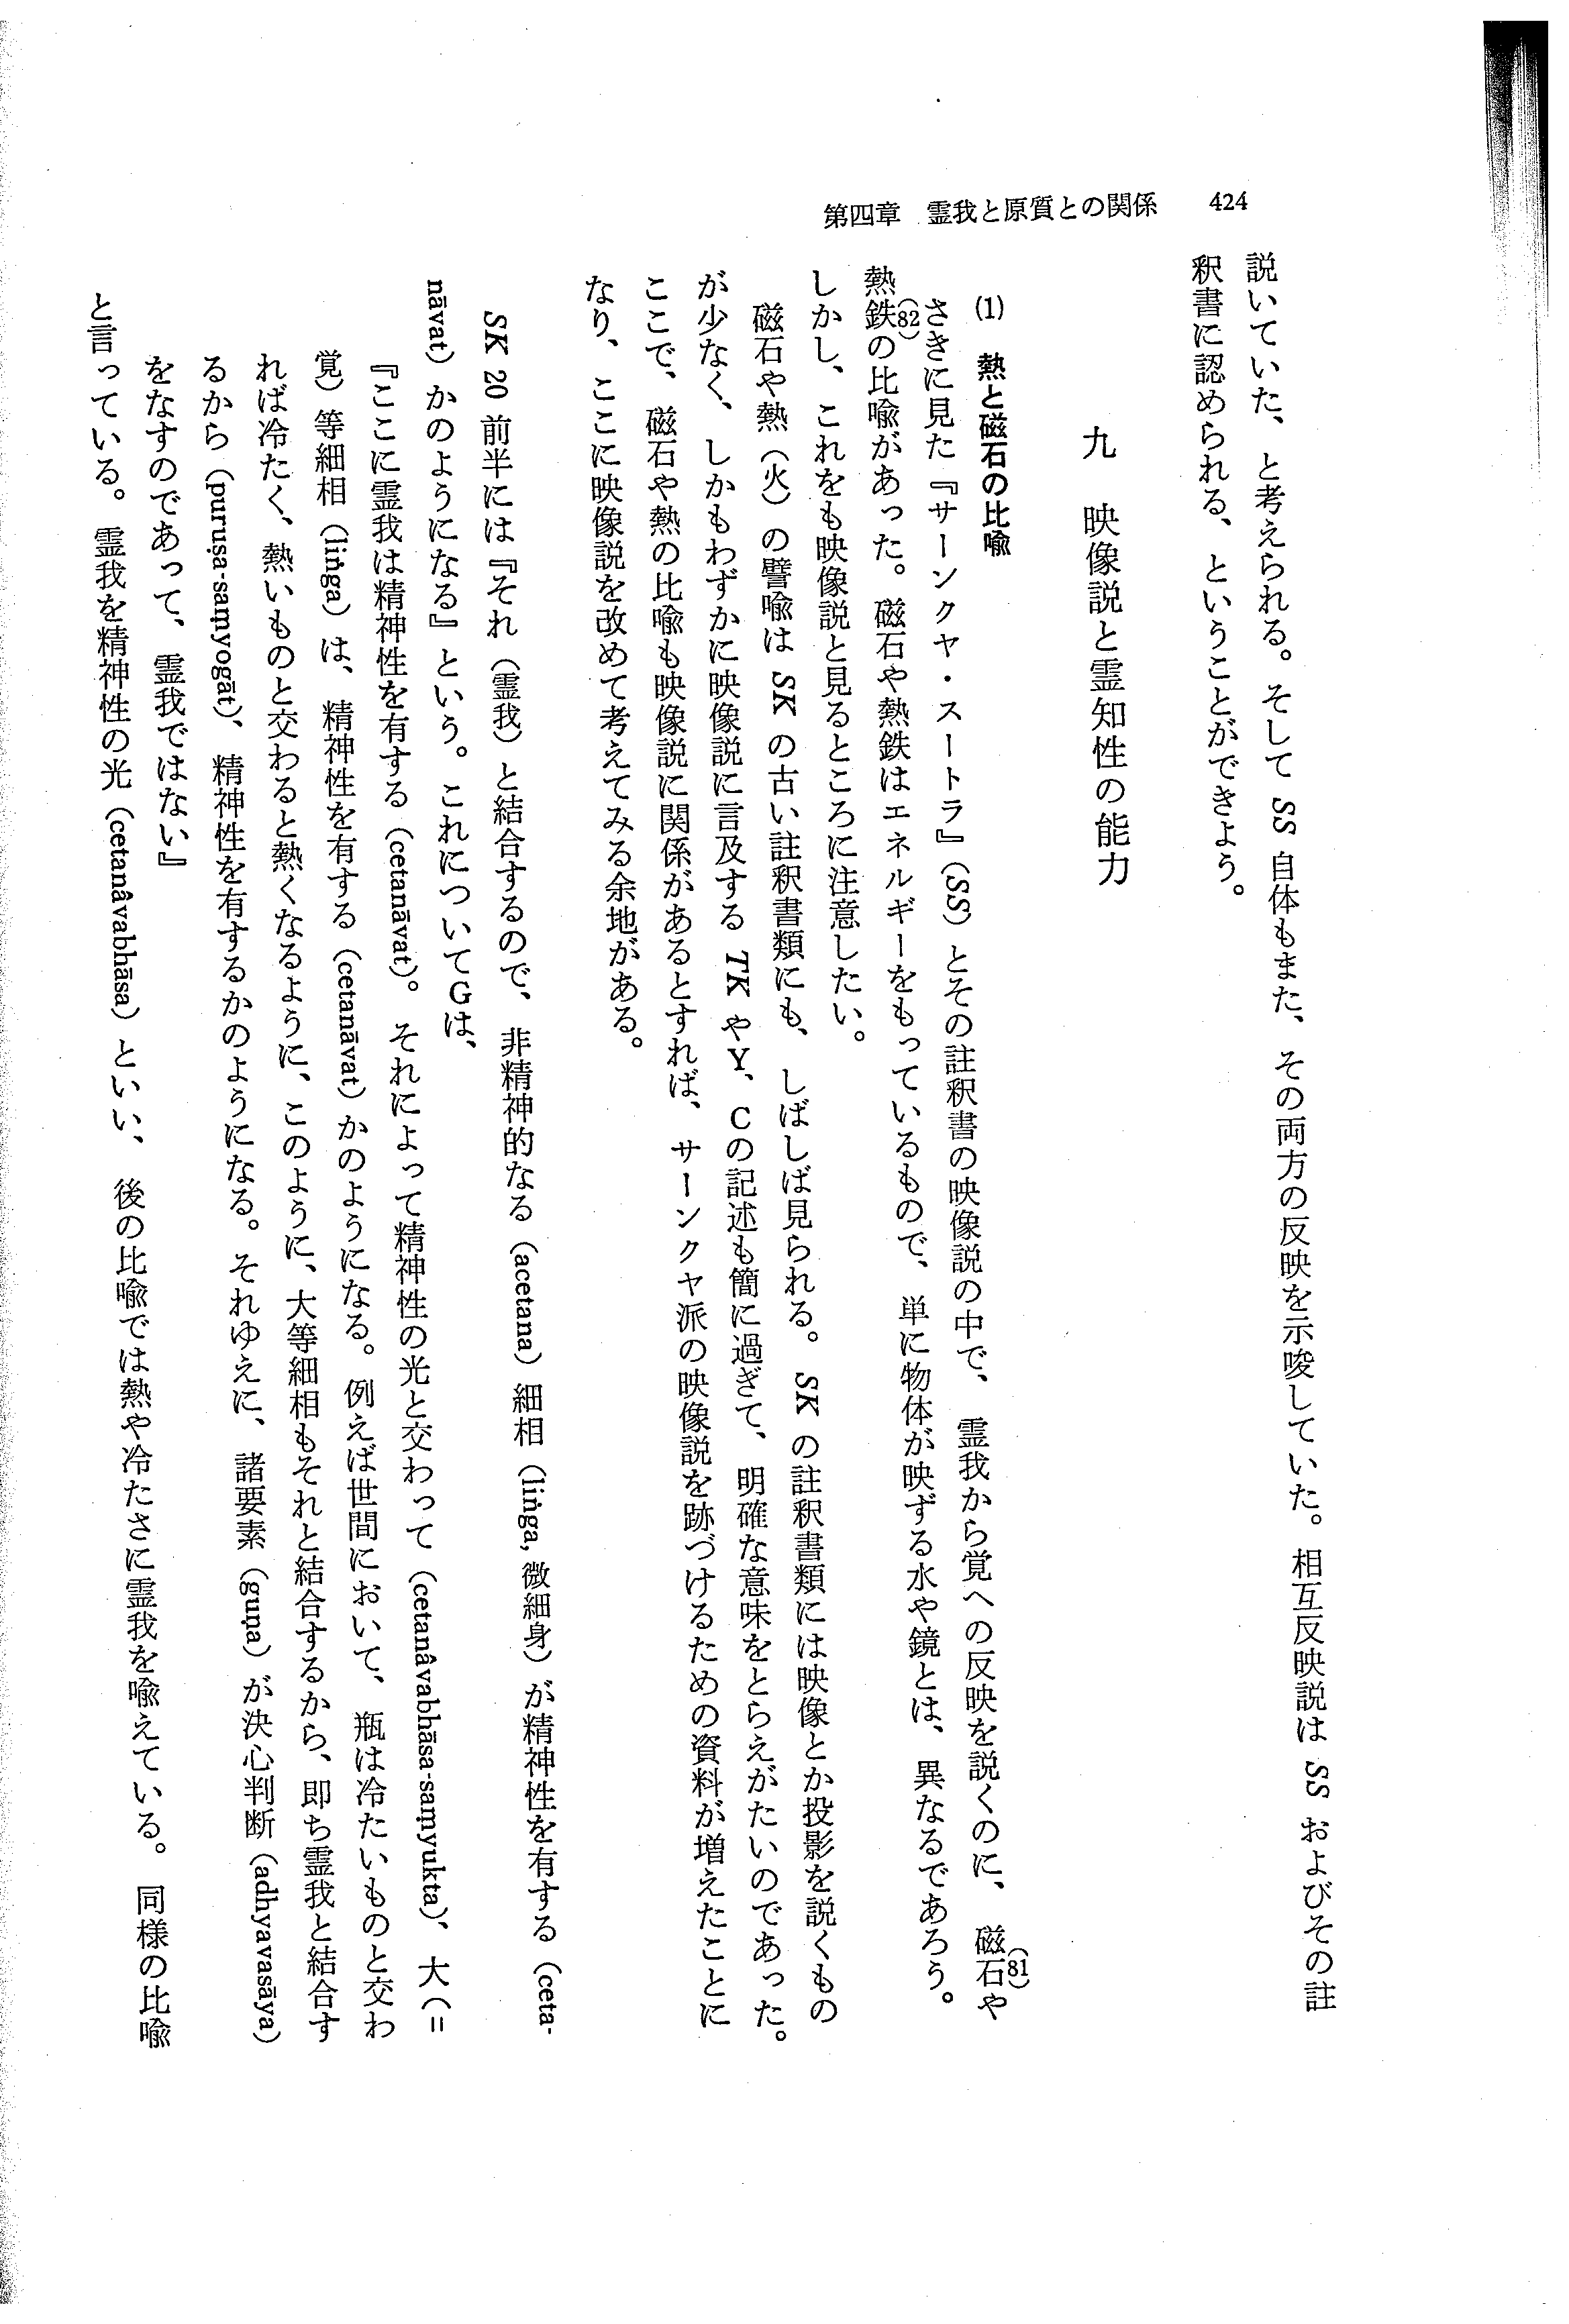 第四章　霊我と原質との関係　424
説いていた、と考えられる。そして SS 自体もまた、その両方の反映を示唆していた。相互反映説は SS およびその註
釈書に認められる、ということができよう。
九　映像説と霊知性の能力
(1)　熱と磁石の比喩
さきに見た『サーンクヤ・スートラ』（SS）とその註釈書の映像説の中で、霊我から覚への反映を説くのに、磁石(81)や
熱鉄(82)の比喩があった。磁石や熱鉄はエネルギーをもっているもので、単に物体が映ずる水や鏡とは、異なるであろう。
しかし、これをも映像説と見るところに注意したい。
磁石や熱（火）の譬喩は SK の古い註釈書類にも、しばしば見られる。SK の註釈書類には映像とか投影を説くもの
が少なく、しかもわずかに映像説に言及する TK やY、Cの記述も簡に過ぎて、明確な意味をとらえがたいのであった。
ここで、磁石や熱の比喩も映像説に関係があるとすれば、サーンクヤ派の映像説を跡づけるための資料が増えたことに
なり、ここに映像説を改めて考えてみる余地がある。
SK 20 前半には『それ（霊我）と結合するので、非精神的なる（acetana）細相（liṅga, 微細身）が精神性を有する（ceta-
nāvat）かのようになる』という。これについてGは、
『ここに霊我は精神性を有する（cetanāvat）。それによって精神性の光と交わって（cetanâvabhāsa-saṃyukta）、大（＝
覚）等細相（liṅga）は、精神性を有する（cetanāvat）かのようになる。例えば世間において、瓶は冷たいものと交わ
れば冷たく、熱いものと交わると熱くなるように、このように、大等細相もそれと結合するから、即ち霊我と結合す
るから（puruṣa-saṃyogāt）、精神性を有するかのようになる。それゆえに、諸要素（guṇa）が決心判断（adhyavasāya）
をなすのであって、霊我ではない』
と言っている。霊我を精神性の光（cetanâvabhāsa）といい、後の比喩では熱や冷たさに霊我を喩えている。同様の比喩